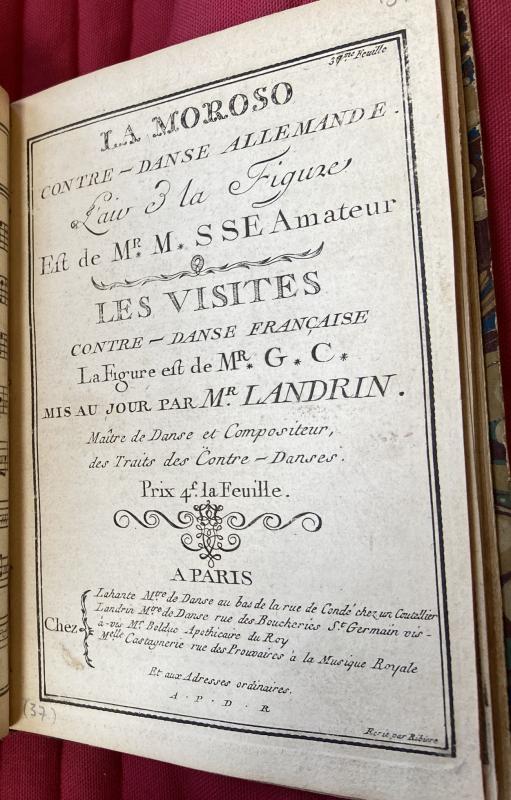 37.me Feuille
LA MOROSO
CONTRE-DANSE ALLEMANDE.
L'air & la Figure
Est de MR. M. SSE Amateur
LES VISITES
CONTRE-DANSE FRANÇAISE
La Figure est de MR. G. C.
MIS AU JOUR PAR MR. LANDRIN.
Maître de Danse et Compositeur,
des Traits des Contre-Danses.
Prix 4f. la Feuille.
A PARIS
Chez
Lahante Mtre de Danse au bas de la rue de Condé chez un Coutellier
Landrin Mtre de Danse rue des Boucheries St Germain vis-
à-vis Mr Belduc Apothicaire du Roy
Melle Castagnerie rue des Prouvaires à la Musique Royale
Et aux Adresses ordinaires.
A . P . D . R
Ecrit par Ribiere
(37.)